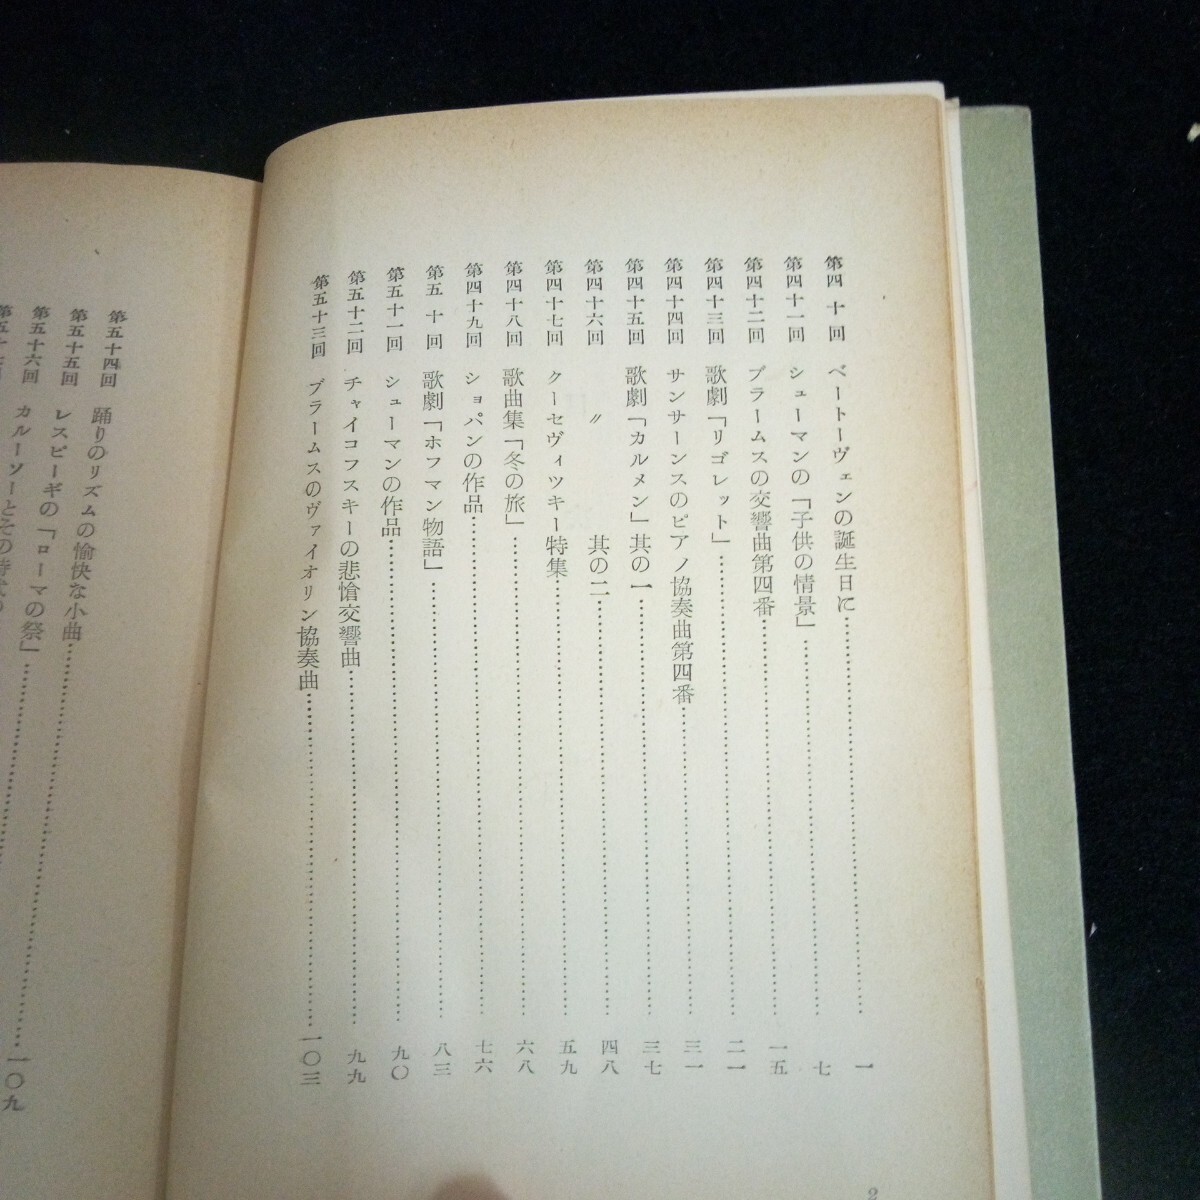 第四十回 ベートーヴェンの誕生日に……一
第四十一回 シューマンの「子供の情景」……七
第四十二回 ブラームスの交響曲第四番……一五
第四十三回 歌劇「リゴレット」……二一
第四十四回 サンサーンスのピアノ協奏曲第四番……三一
第四十五回 歌劇「カルメン」其の一……三七
第四十六回 〃 其の二……四八
第四十七回 クーセヴィツキー特集……五九
第四十八回 歌曲集「冬の旅」……六八
第四十九回 ショパンの作品……七六
第五十回 歌劇「ホフマン物語」……八三
第五十一回 シューマンの作品……九〇
第五十二回 チャイコフスキーの悲愴交響曲……九九
第五十三回 ブラームスのヴァイオリン協奏曲……一〇三
2
第五十四回 踊りのリズムの愉快な小曲……一〇九
第五十五回 レスピーギの「ローマの祭」……
第五十六回 カルーソーとその時代の